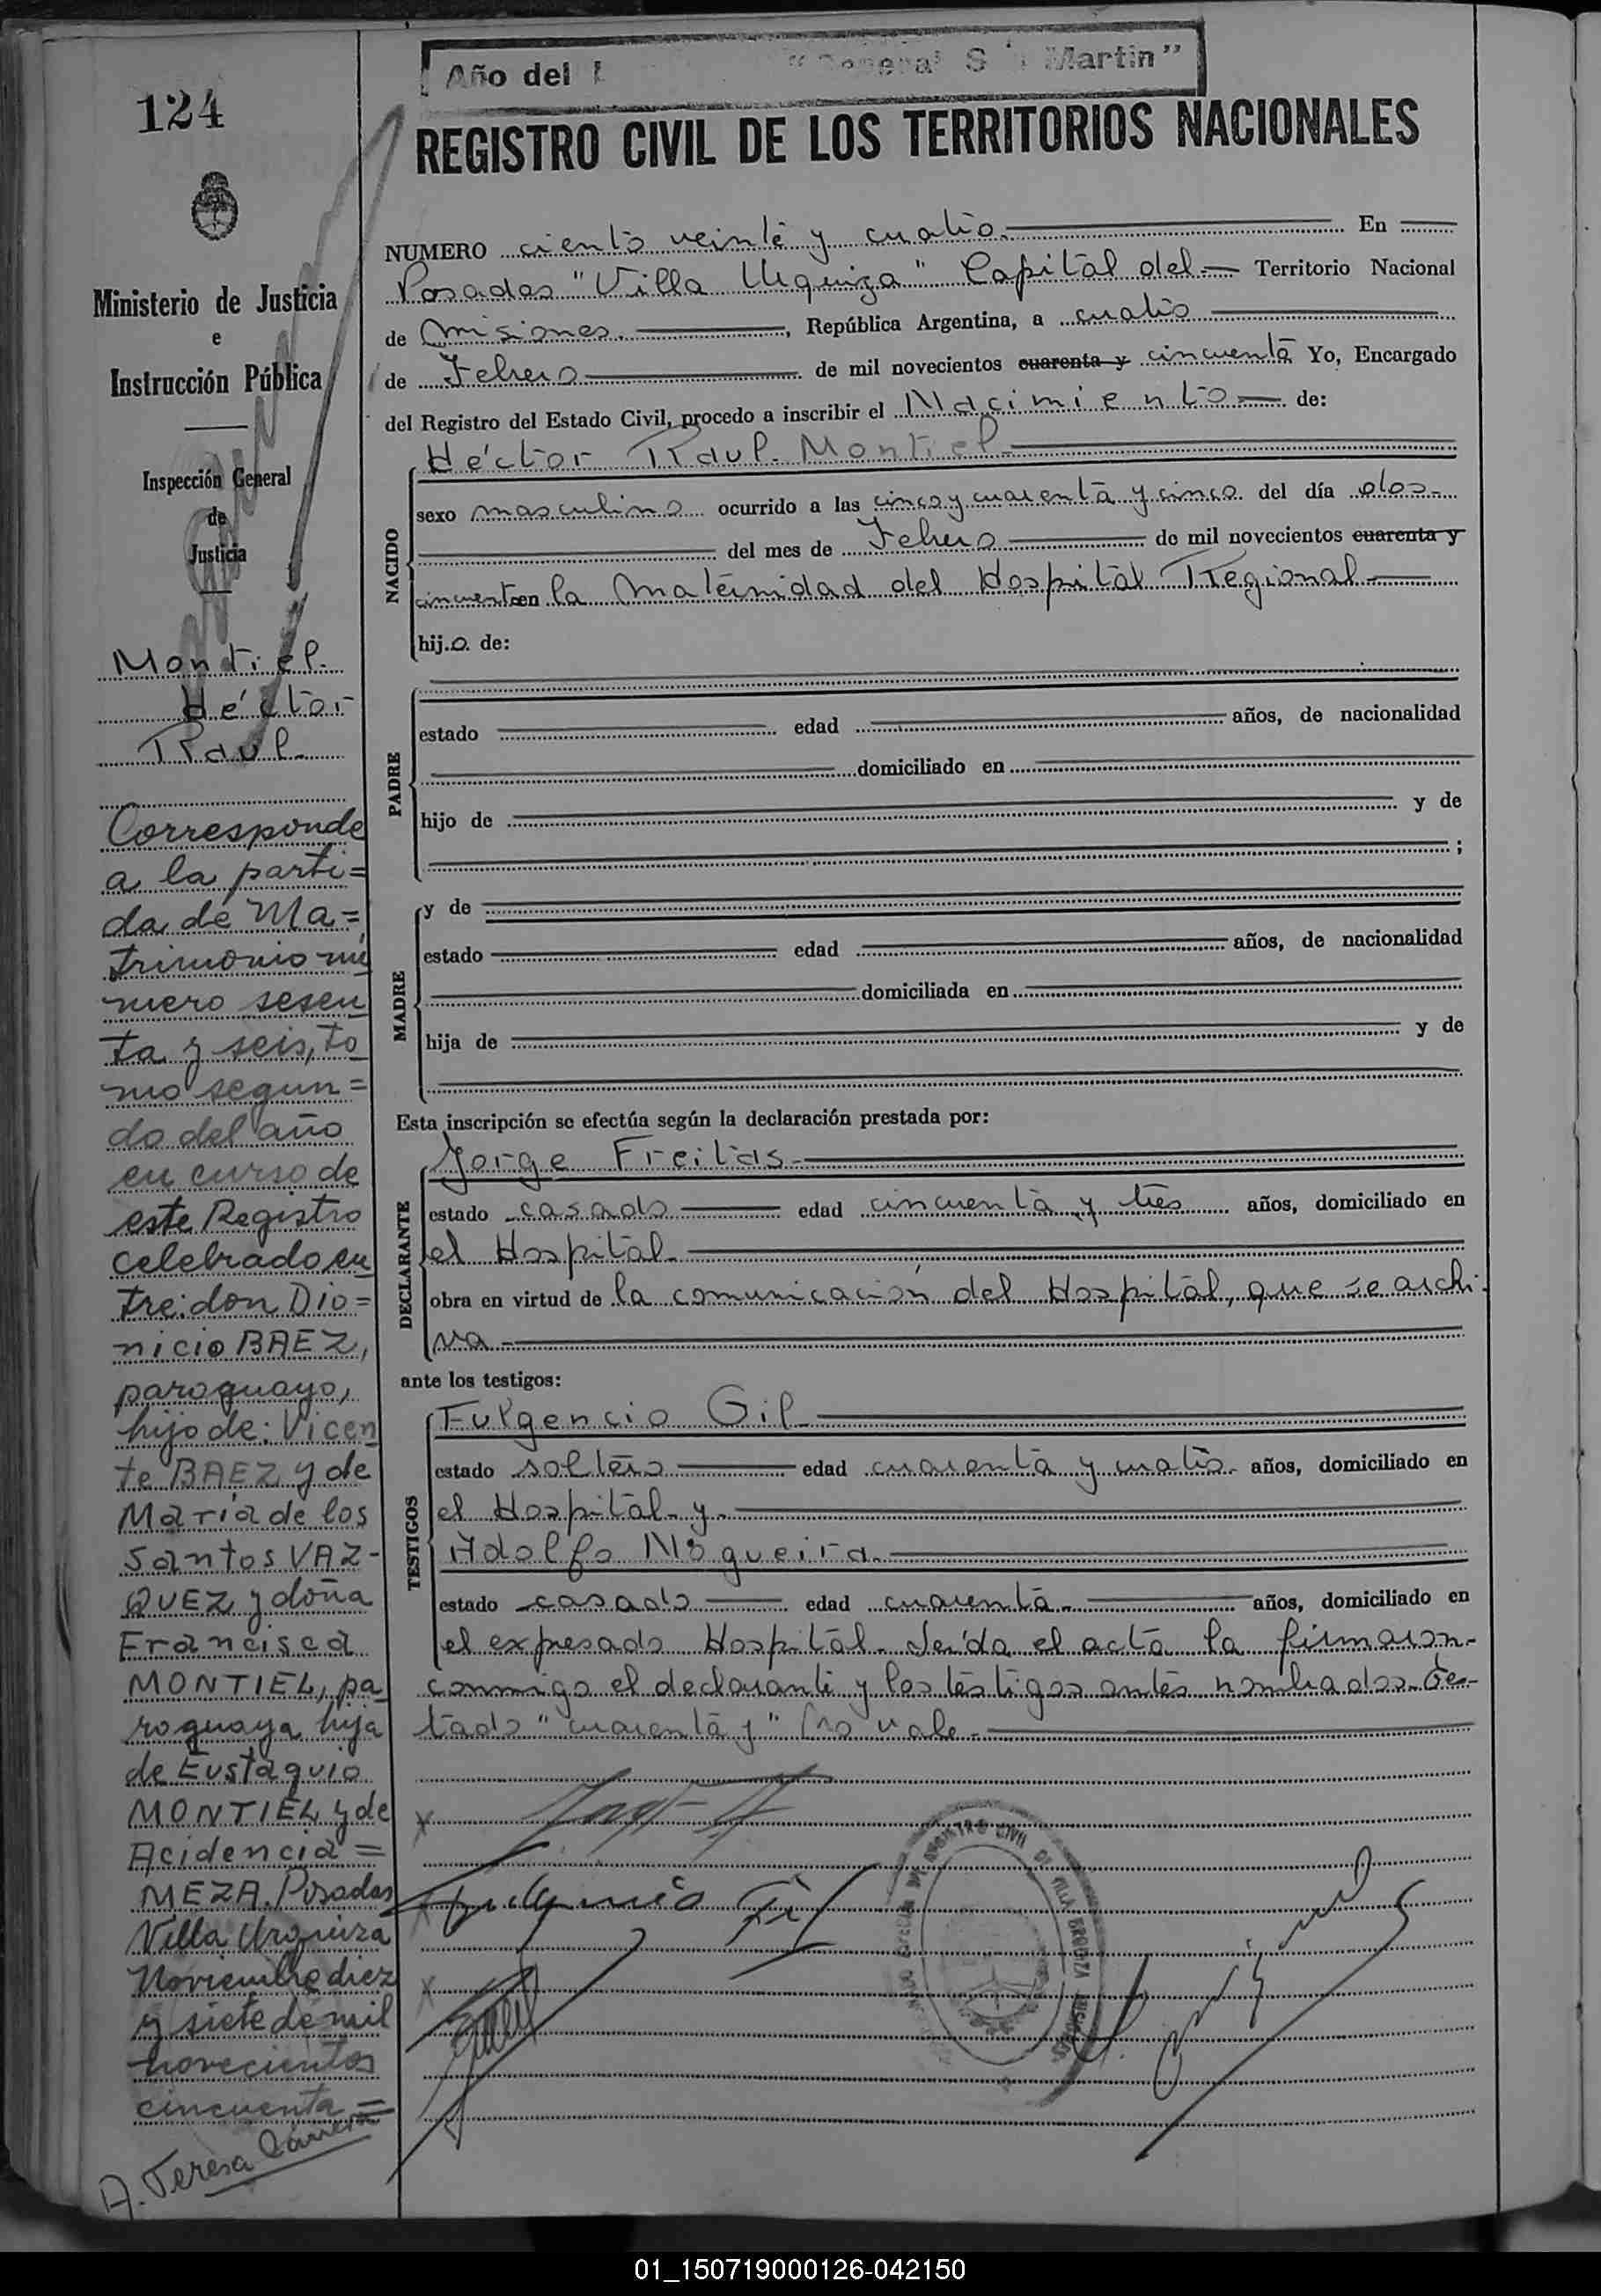 Año del "General S Martin"
124
REGISTRO CIVIL DE LOS TERRITORIOS NACIONALES
Ministerio de Justicia
e
Instrucción Pública
Inspección General
de
Justicia
Montiel.
Héctor
Raul.
Corresponde
a la parti=
da de Ma=
trimonio nú
mero sesen
ta y seis, to
mo segun=
do del año
en curso de
este Registro
celebrado en
tre: don Dio=
nicio BAEZ,
paraguayo,
hijo de: Vicen
te BAEZ y de
María de los
Santos VAZ-
QUEZ y doña
Francisca
MONTIEL, pa
raguaya hija
de Eustaquio
MONTIEL y de
Acidencia=
MEZA. Posadas
Villa Urquiza
Noviembre diez
y siete de mil
novecientos
cincuenta=
A. Teresa
NUMERO ciento veinte y cuatro. En
Posadas "Villa Urquiza" Capital del Territorio Nacional
de Misiones. , República Argentina, a cuatro
de Febrero de mil novecientos cuarenta y cincuenta Yo, Encargado
del Registro del Estado Civil, procedo a inscribir el Nacimiento de:
NACIDO
Héctor Raul. Montiel.
sexo masculino ocurrido a las cinco y cuarenta y cinco. del día dos-
del mes de Febrero de mil novecientos cuarenta y
cincuenta en la Maternidad del Hospital Regional
hijo. de:
PADRE
estado edad años, de nacionalidad
domiciliado en
hijo de y de
;
MADRE
y de
estado edad años, de nacionalidad
domiciliada en
hija de y de
Esta inscripción se efectúa según la declaración prestada por:
DECLARANTE
Jorge Freitas.
estado casado edad cincuenta y tres años, domiciliado en
el Hospital.
obra en virtud de la comunicación del Hospital, que se archi-
va
ante los testigos:
TESTIGOS
Fulgencio Gil
estado soltero edad cuarenta y cuatro. años, domiciliado en
el Hospital. y.
Adolfo Nogueira.
estado casado edad cuarenta. años, domiciliado en
el expresado Hospital. Leída el acta la firmaron.
conmigo el declarante y los testigos antes nombrados. Tes-
tado "cuarenta y" No vale.
Fulgencio Gil
REGISTRO CIVIL DE VILLA URQUIZA
01_150719000126-042150